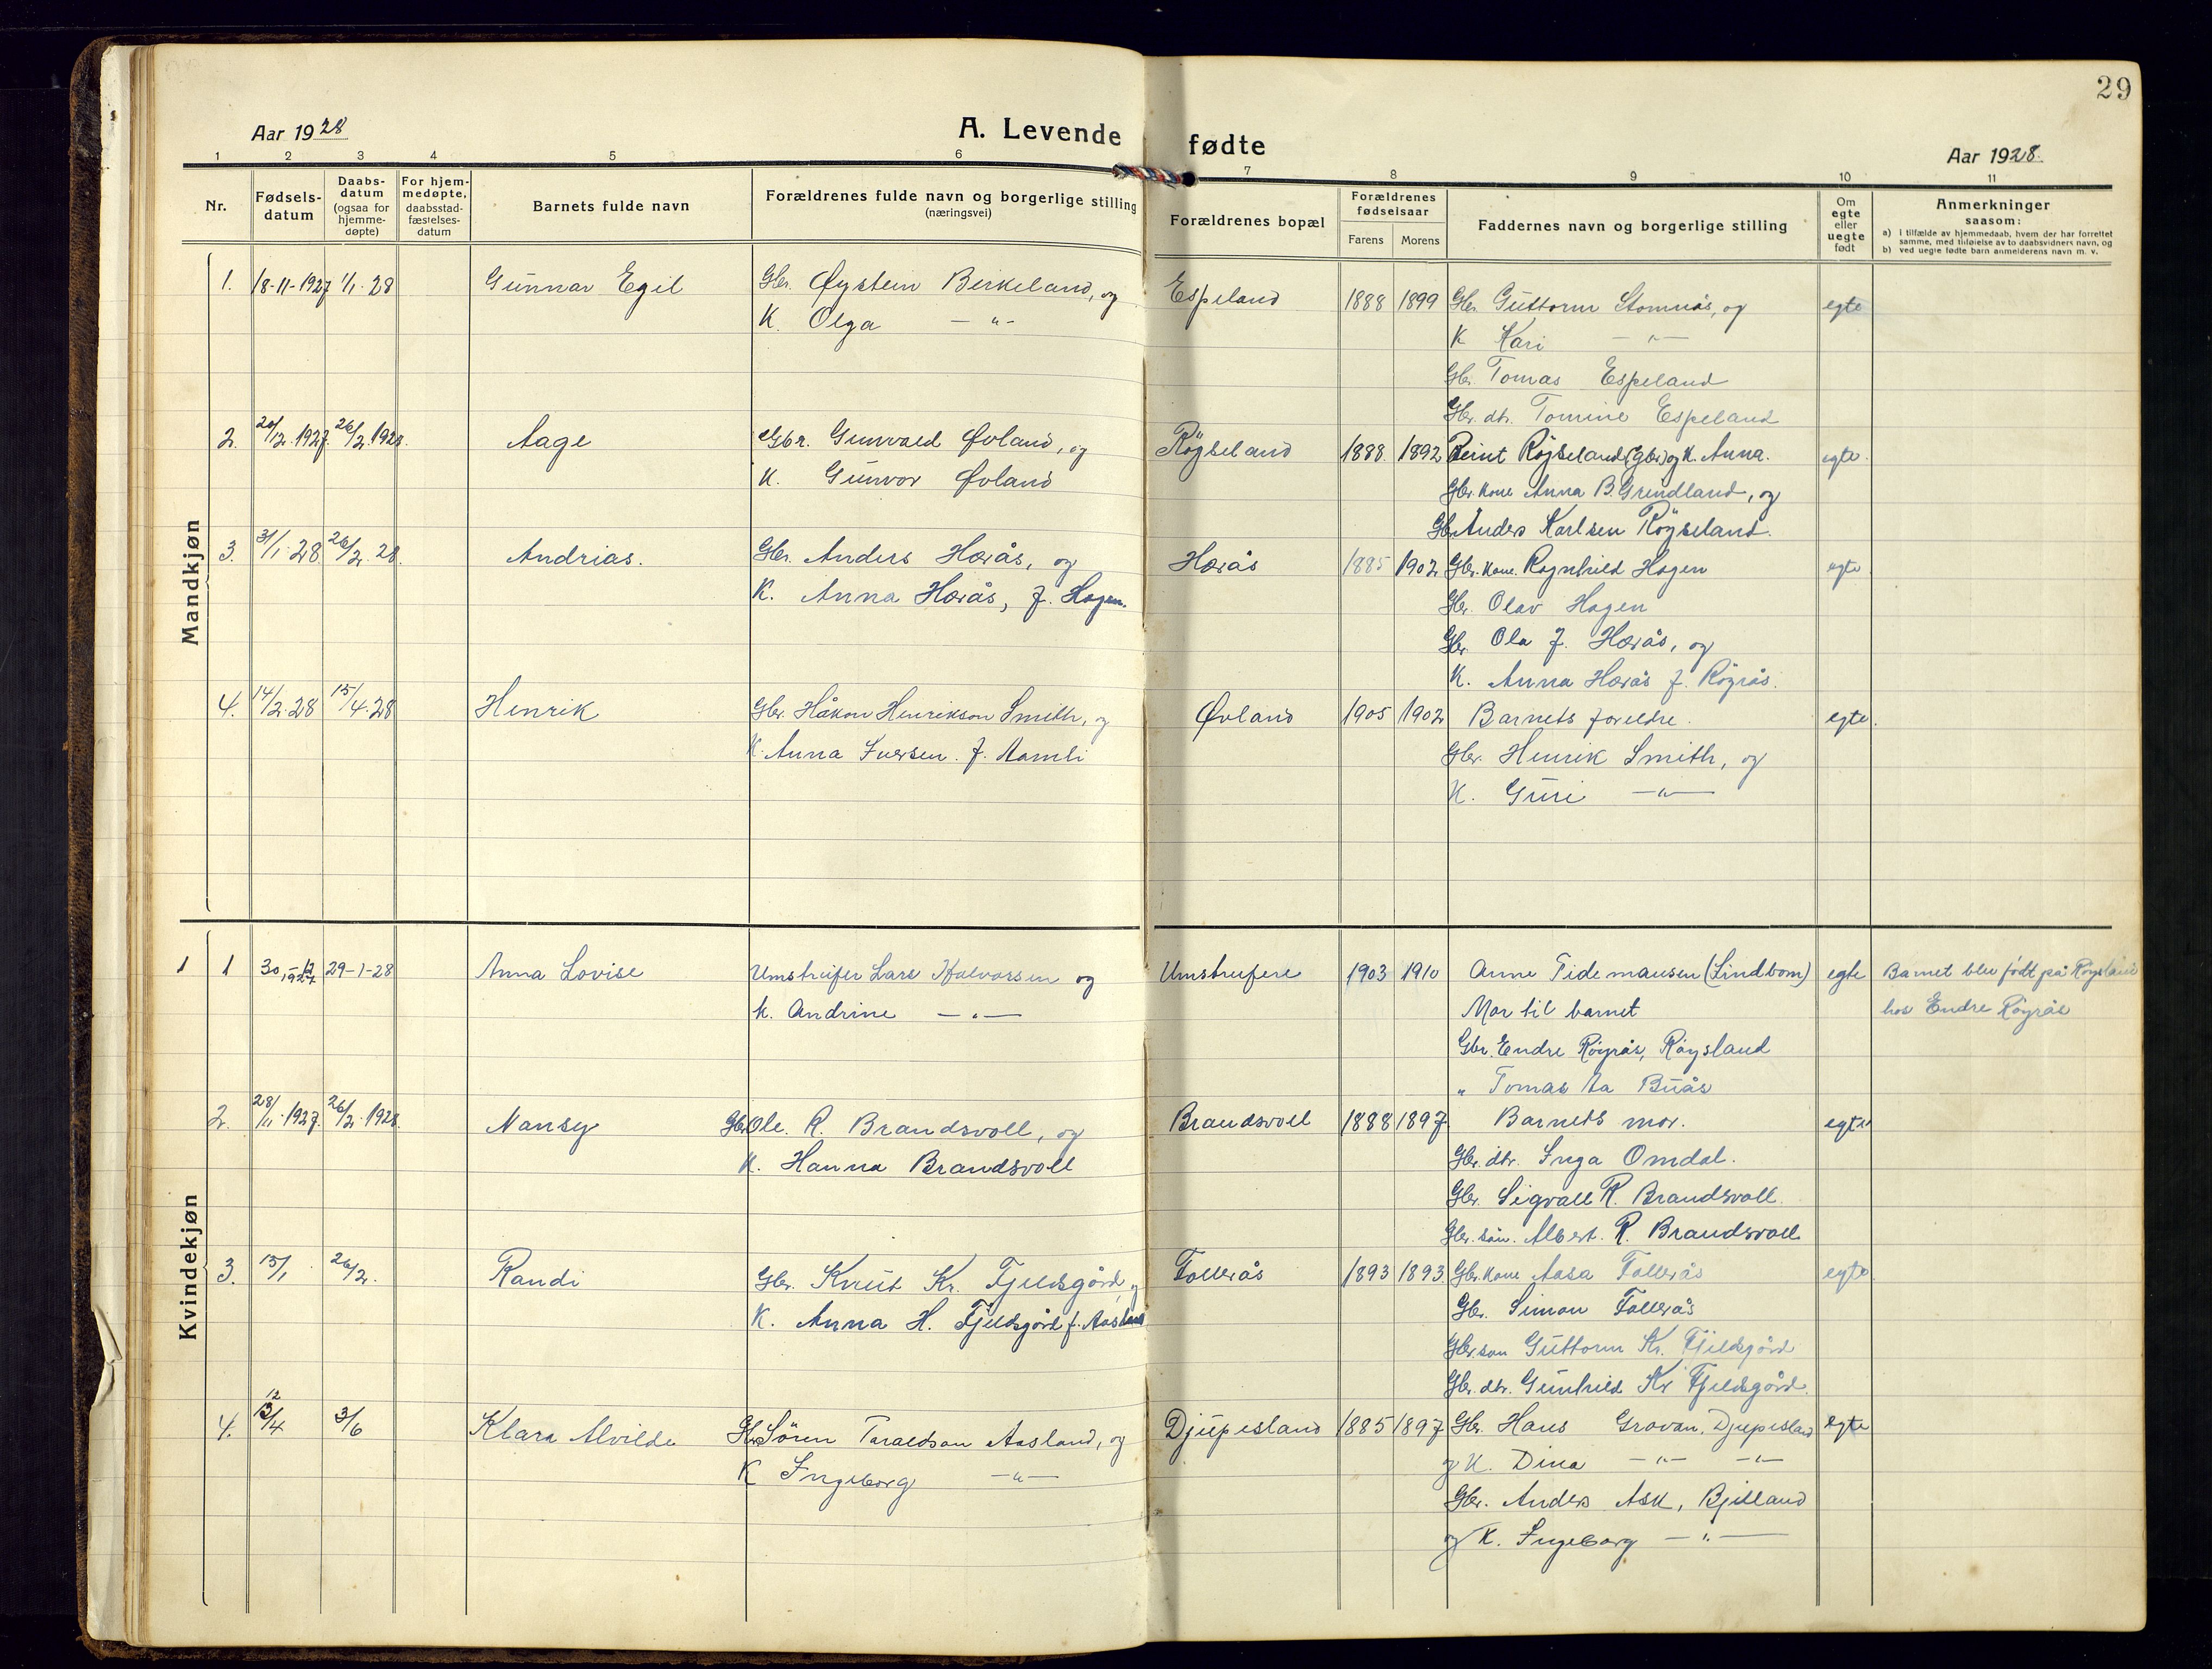 29
Aar 1928
A. Levende fødte
Aar 1928.
1 2 3 4 5 6 7 8 9 10 11
Nr.
Fødsels-
datum
Daabs-
datum
(ogsaa for
hjemme-
døpte)
For hjem-
medøpte,
daabsstad-
fæstelses-
datum
Barnets fulde navn
Forældrenes fulde navn og borgerlige stilling
(næringsvei)
Forældrenes bopæl
Forældrenes
fødselsaar
Farens Morens
Faddernes navn og borgerlige stilling
Om
egte
eller
uegte
født
Anmerkninger
saasom:
a) i tilfælde av hjemmedaab, hvem der har forrettet
samme, med tilføielse av to daabsvidners navn, og
b) ved uegte fødte barn anmelderens navn m. v.
Mandkjøn
1. 18-11-1927 1/1-28 Gunnar Egil Gbr. Øystein Birkeland, og Espeland 1888 1899 Gbr. Guttorm Stomnås, og egte
K. Olga —"— K Kari —"—
Gbr. Tomas Espeland
Gbr. dtr. Tomine Espeland
2. 20/12.1927. 26/2.1928. Aage Gbr. Gunvald Øvland, og Röyseland 1888. 1892 Reint Röyseland (Gbr) og K. Anna. egte.
K. Gunvor Øvland Gbr. kone Anna B. Grindland, og
Gbr Anders Karlsen Röyseland.
3. 31/1.28 26/2.28. Andrias. Gbr. Anders Hærås, og Hærås 1885 1902 Gbr. kone. Ragnhild Hagen egte
K. Anna Hærås, f. Hagen. Gbr. Olav Hagen
Gbr. Ola J. Hærås, og
K. Anna Hærås f. Röyrås.
4. 14/2.28 15/4.28 Henrik Gbr. Håkon Henrikson Smith, og Øvland 1905 1902 Barnets foreldre. egte.
K. Anna Iversen. f. Aamli Gbr. Henrik Smith, og
K. Guri —"—
Kvindekjøn
1 1 30-12 1927 29-1-28 Anna Lovise Umstreifer Lars Halvorsen og Umstreifere 1903 1910 Anne Tidemansen (Lindbom) egte Barnet blev födt på Röysland
k. Andrine —"— Mor til barnet hos Endre Röyrås
Gbr. Endre Röyrås, Röysland
" Tomas Aa Buås
2. 28/11.1927. 26/2.1928. Nansy Gbr Ole. R. Brandsvoll, og Brandsvoll 1888 1897 Barnets mor. egte
K. Hanna Brandsvoll Gbr. dtr. Inga Omdal.
Gbr. Sigvall R. Brandsvoll.
Gbr. sön. Albert. R. Brandsvoll
3. 15/1 26/2. Randi Gbr. Knut Kr. Fjeldsgård, og Follerås 1893 1893 Gbr. kone Aasa Follerås egte
K. Anna H. Fjeldsgård f. Aasland Gbr. Simon Follerås
Gbr. son Guttorm Kr. Fjeldsgård
Gbr. dtr. Gunhild Kr Fjeldsgård.
4. 12/4 3/6 Klara Alvilde Gbr Sören Taraldson Aasland, og Djupesland 1885 1897 Gbr. Hans Grovan, Djupesland egte
K Ingeborg —"— og K. Dina —"— —"—
Gbr. Anders Ask, Bjelland
og K. Ingeborg —"—